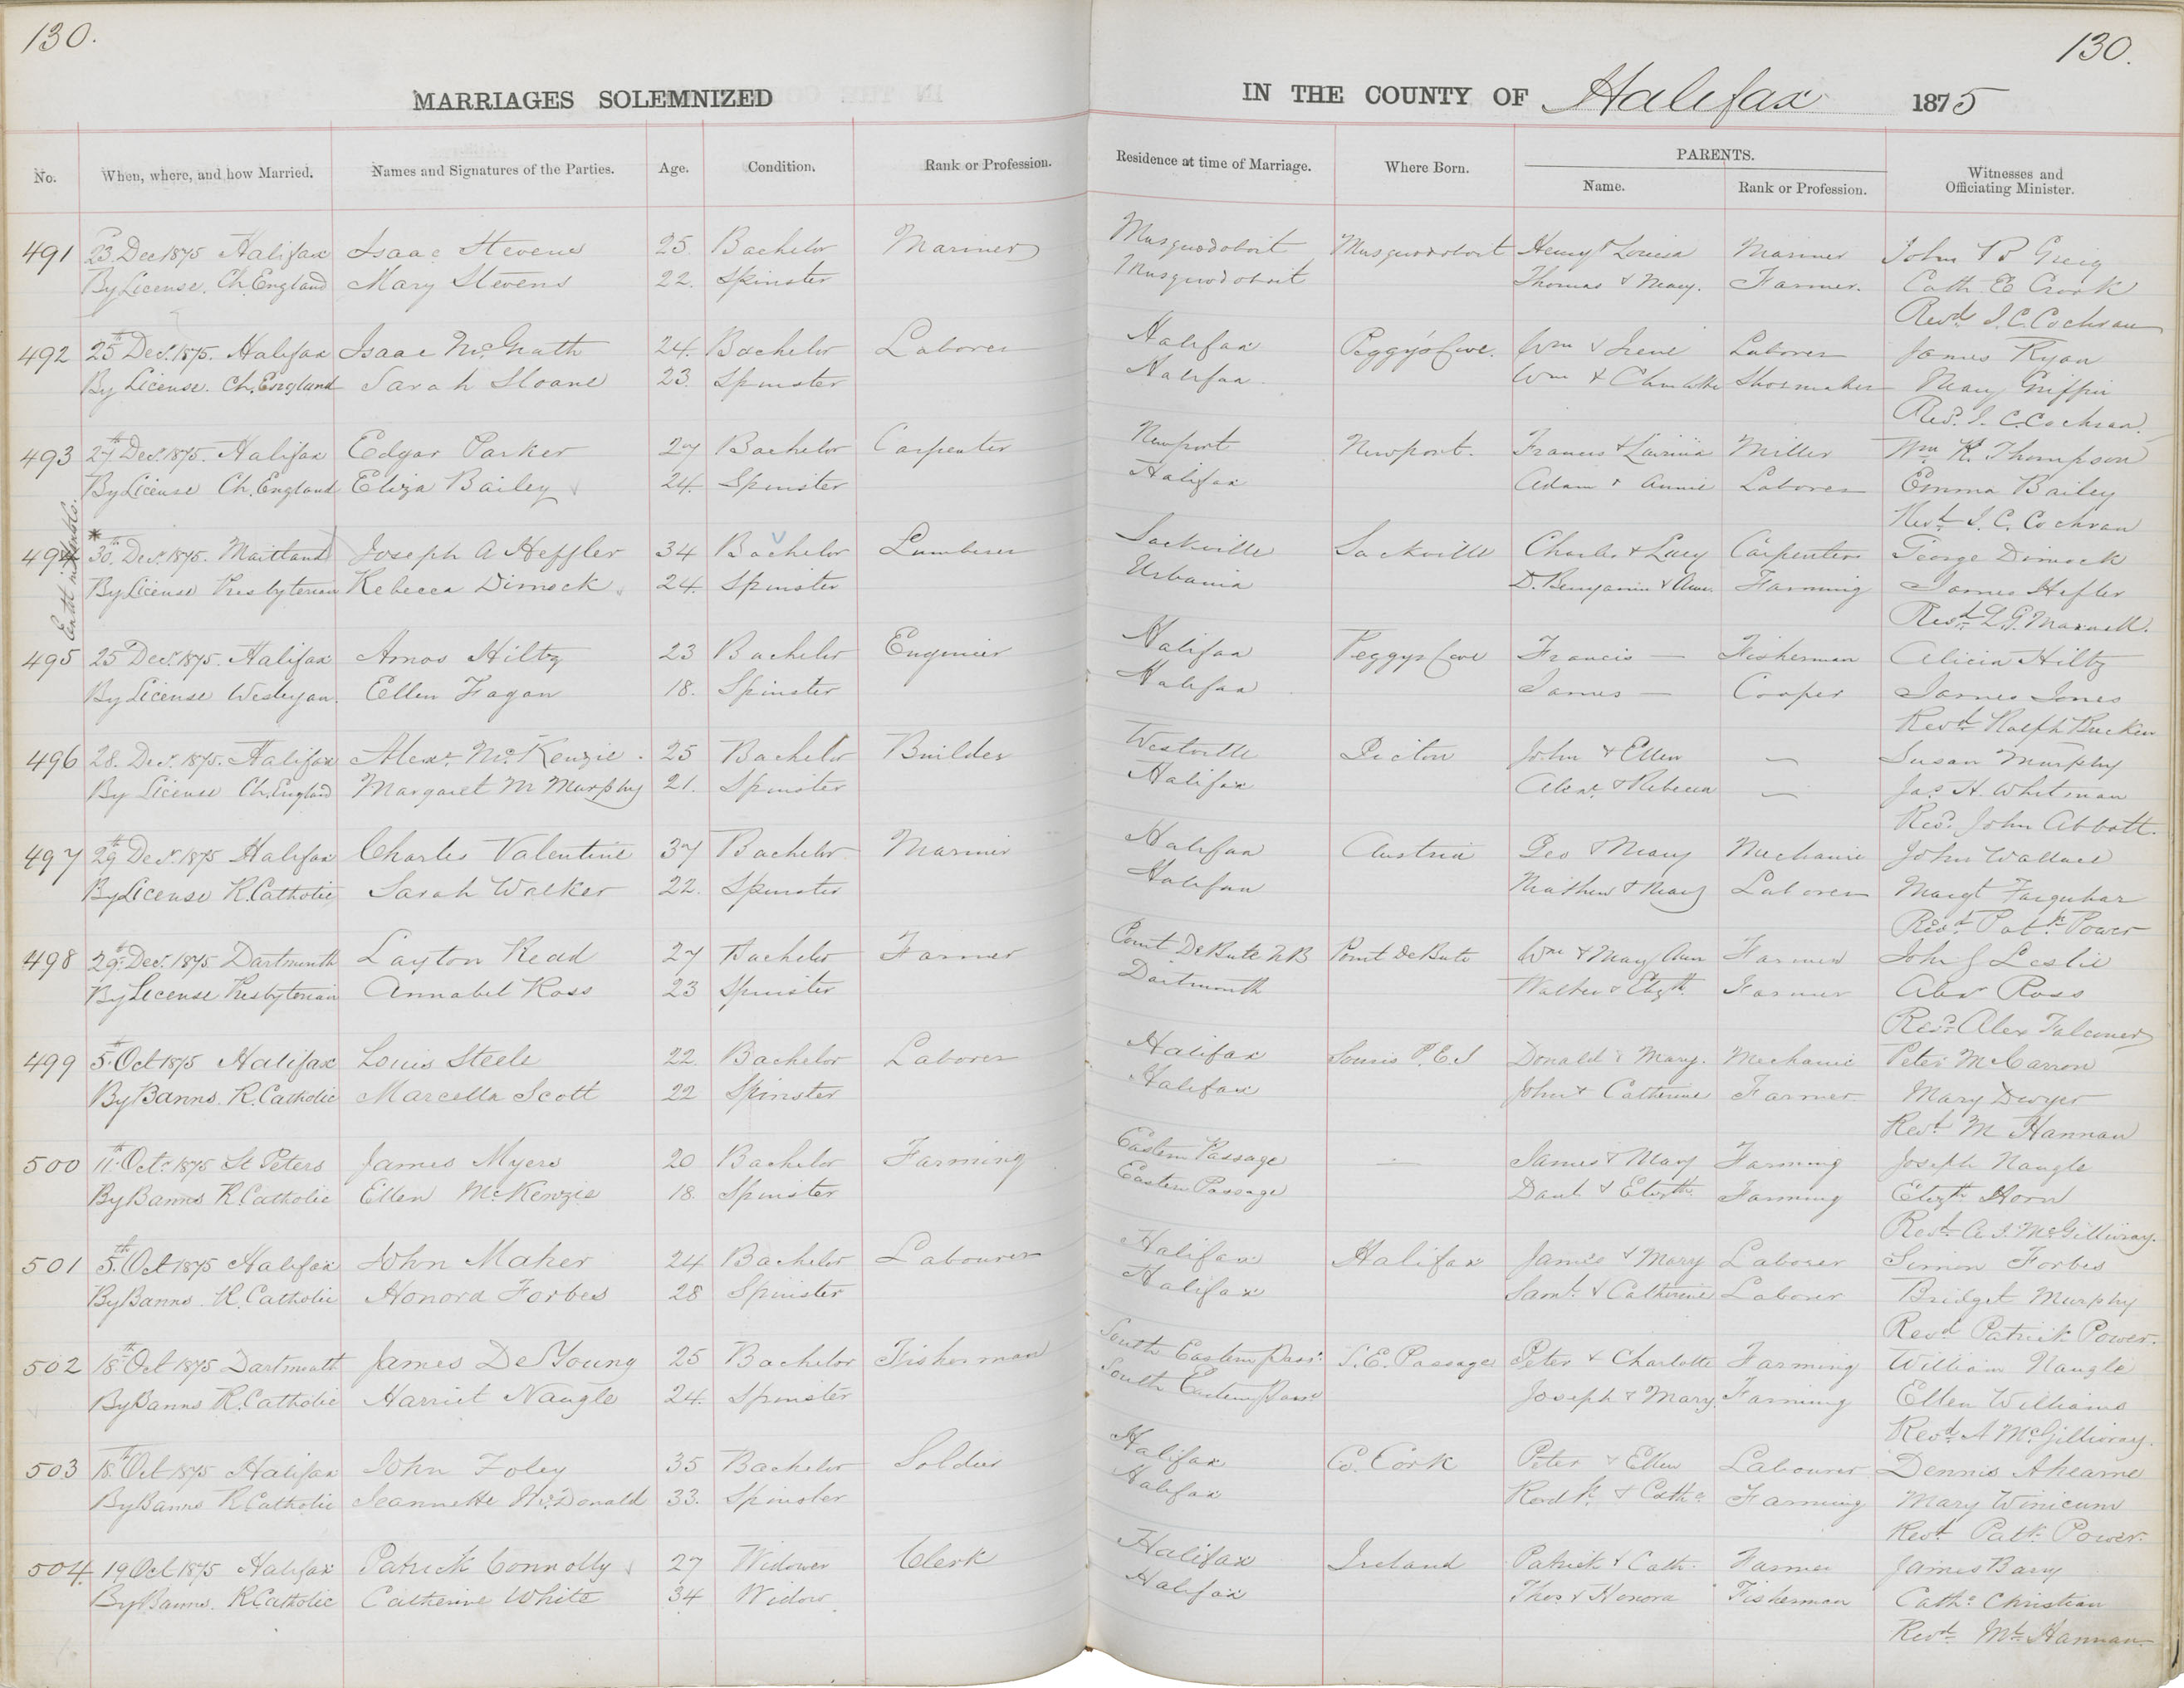 130.
130.
MARRIAGES SOLEMNIZED IN THE COUNTY OF Halifax 1875
No. When, where, and how Married. Names and Signatures of the Parties. Age. Condition. Rank or Profession. Residence at time of Marriage. Where Born. PARENTS. Name. Rank or Profession. Witnesses and Officiating Minister.
491 23 Dec 1875 Halifax Isaac Stevens 25. Bachelor Mariner Musquodoboit Musquodoboit Henry & Louisa Mariner John B Greig
By License. Ch. England Mary Stevens 22. Spinster Musquodoboit Thomas & Mary. Farmer. Cath E Crook
Revd. J. C. Cochran
492 25th Decr. 1875. Halifax Isaac McGrath 24. Bachelor Laborer Halifax Peggy's Cove. Wm & Irene Laborer James Ryan
By License. Ch. England Sarah Sloane 23. Spinster Halifax Wm & Charlotte Shoemaker Mary Griffin
Revd. J. C. Cochran.
493 27th Decr. 1875. Halifax Edgar Parker 27 Bachelor Carpenter Newport Newport. Francis & Lavinia Miller Wm H. Thompson
By License Ch. England Eliza Bailey 24. Spinster Halifax Adam & Annie Laborer Emma Bailey
Revd. J. C. Cochran
494 * 30th Decr. 1875. Maitland Joseph A Heffler 34 Bachelor Lumberer Sackville Sackville Charles & Lucy Carpenter George Dimock
By License Presbyterian Rebecca Dimock 24. Spinster Urbania D. Benjamin & Ann. Farming James Hefler
Revd. L. G. Macneill.
495 25 Decr. 1875. Halifax Amos Hiltz 23 Bachelor Engineer Halifax Peggys Cove Francis — Fisherman Alicia Hiltz
By License Wesleyan. Ellen Fagan 18. Spinster Halifax James — Cooper James Jones
Revd. Ralph Brecken
496 28. Decr. 1875. Halifax Alexr. McKenzie. 25 Bachelor Builder Westville Pictou John & Ellen — Susan Murphy
By License Ch. England Margaret M Murphy 21. Spinster Halifax Alexr. & Rebecca — Jas. H. Whitman
Revd. John Abbott.
497 29th Decr. 1875 Halifax Charles Valentine 37 Bachelor Mariner Halifax Austria Geo & Mary Mechanic John Wallace
By License R. Catholic Sarah Walker 22. Spinster Halifax Mathew & Mary Laborer Margt Farquhar
Revd. Patk. Power
498 29th Decr. 1875 Dartmouth Layton Read 27 Bachelor Farmer Point De Bute N B Point De Bute Wm & Mary Ann Farmer John J Leslie
By License Presbyterian Annabel Ross 23 Spinster Dartmouth Walter & Elizth. Farmer Alexr Ross
Revd. Alex Falconer
499 5th Oct 1875 Halifax Louis Steele 22. Bachelor Laborer Halifax Souris P. E. I Donald & Mary. Mechanic Peter McCarron
By Banns. R. Catholic Marcella Scott 22 Spinster Halifax John & Catherine Farmer. Mary Dwyer
Revd. M Hannan
500 11th Octr. 1875 St Peters James Myers 20 Bachelor Farming Eastern Passage — James & Mary Farming Joseph Naugle
By Banns R. Catholic Ellen McKenzie 18. Spinster Eastern Passage Danl. & Elizth. Farming Elizth Horn
Revd. A. J. McGillivray.
501 5th. Oct 1875 Halifax John Maher 24 Bachelor Labourer Halifax Halifax James & Mary Laborer Simon Forbes
By Banns R. Catholic Honora Forbes 28 Spinster Halifax Saml. & Catherine Laborer Bridget Murphy
Revd Patrick Power.
502 18th. Oct 1875 Dartmouth James DeYoung 25 Bachelor Fisherman South Eastern Pass. S. E. Passage Peter & Charlotte Farming William Naugle
By Banns R. Catholic Harriet Naugle 24. Spinster South Eastern Pass. Joseph & Mary. Farming Ellen Williams
Revd. A McGillivray.
503 18th Oct 1875 Halifax John Foley 35 Bachelor Soldier Halifax Co. Cork Peter & Ellen Labourer Dennis Ahearne
By Banns R. Catholic Jeannette McDonald 33. Spinster Halifax & Cathe. Farming Mary Winicum
Revd. Patk. Power.
504. 19 Oct 1875 Halifax Patrick Connolly 27 Widower Clerk Halifax Ireland Patrick & Cath. Farmer James Barry
By Banns. R. Catholic Catherine White 34 Widow Halifax Thos. & Honora Fisherman Cathe. Christian
Revd. Ml. Hannan.